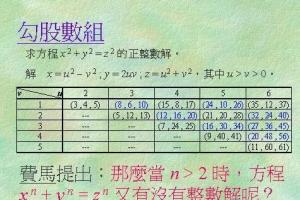 勾股數組
求方程 x² + y² = z² 的正整數解。
解 x = u² – v² ; y = 2uv ; z = u² + v²，其中 u > v > 0。
v u 2 3 4 5 6
1 (3, 4, 5) (8, 6, 10) (15, 8, 17) (24, 10, 26) (35, 12, 37)
2 --- (5, 12, 13) (12, 16, 20) (21, 20, 29) (32, 24, 40)
3 --- --- (7, 24, 25) (16, 30, 34) (27, 36, 45)
4 --- --- --- (9, 40, 41) (20, 48, 56)
5 --- --- --- --- (11, 60, 61)
費馬提出：那麼當 n > 2 時，方程
xⁿ + yⁿ = zⁿ 又有沒有整數解呢？